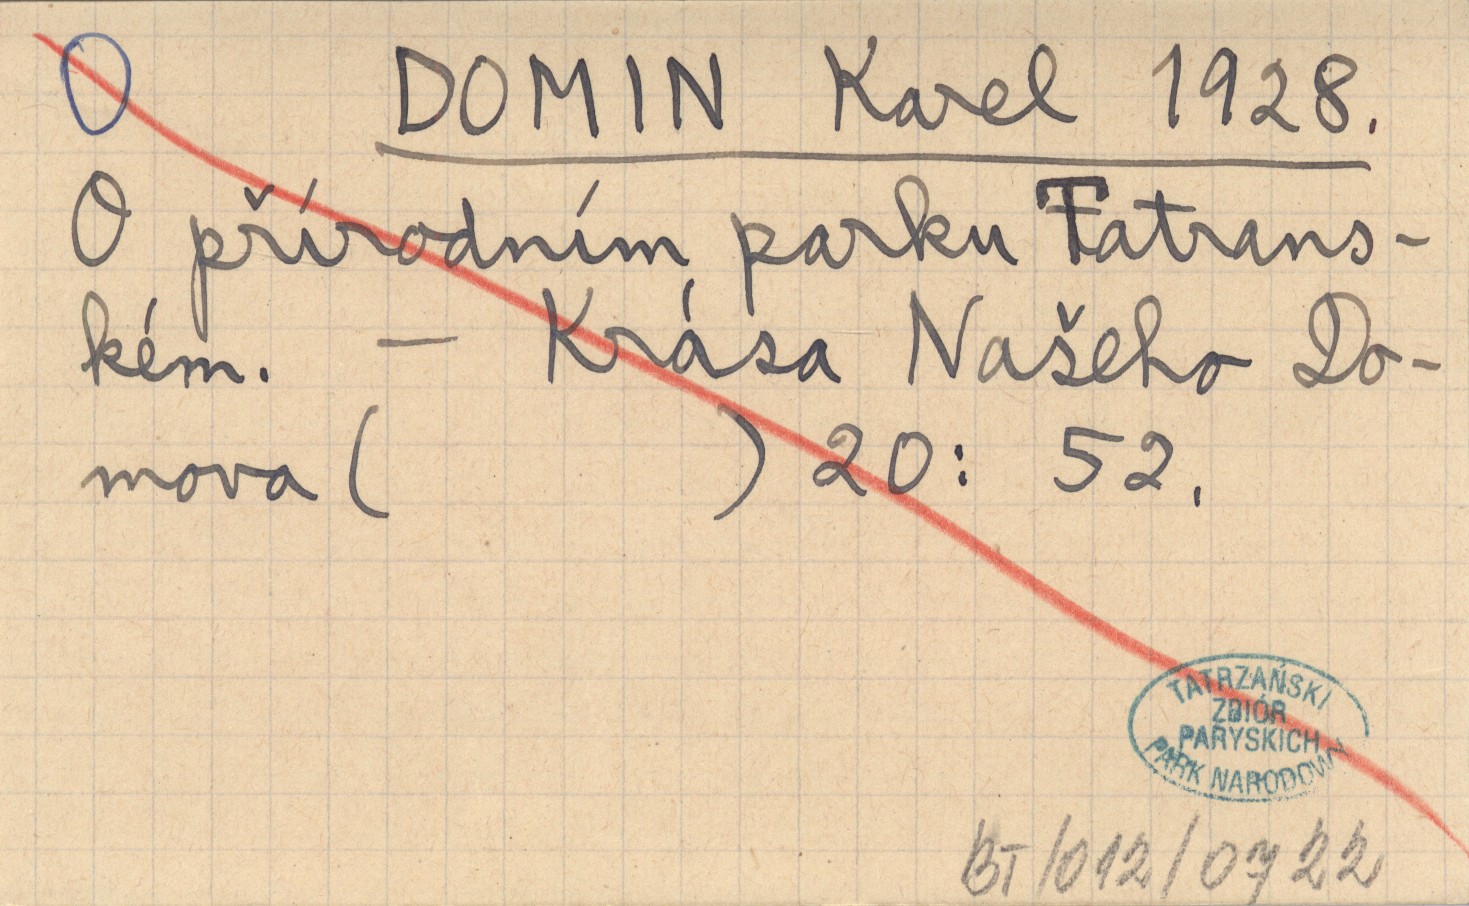 O DOMIN Karel 1928.
O přírodním parku Tatrans-
kém. — Krása Našeho Do-
mova ( ) 20: 52.
TATRZAŃSKI
ZBIÓR
PARYSKICH
PARK NARODOWY
BT/012/0722